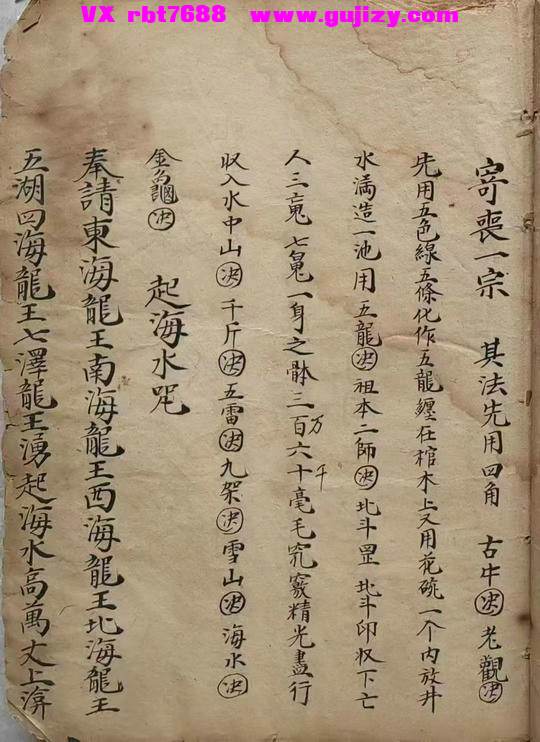 VX rbt7688 www.gujizy.com
寄喪一宗 其法先用四角 古牛决老觀决
先用五色線五條化作五龍纏在棺木上又用花碗一个内放井
水满造一池用五龍决祖本二師决北斗罡北斗印收下亡
人三魂七魄一身之骵三百万六十千毫毛竅精光盡行
收入水中山决千斤决五雷决九架决雪山决海水决
金龜决 起海水咒
奉請東海龍王南海龍王西海龍王北海龍王
五湖四海龍王七澤龍王湧起海水高萬丈上